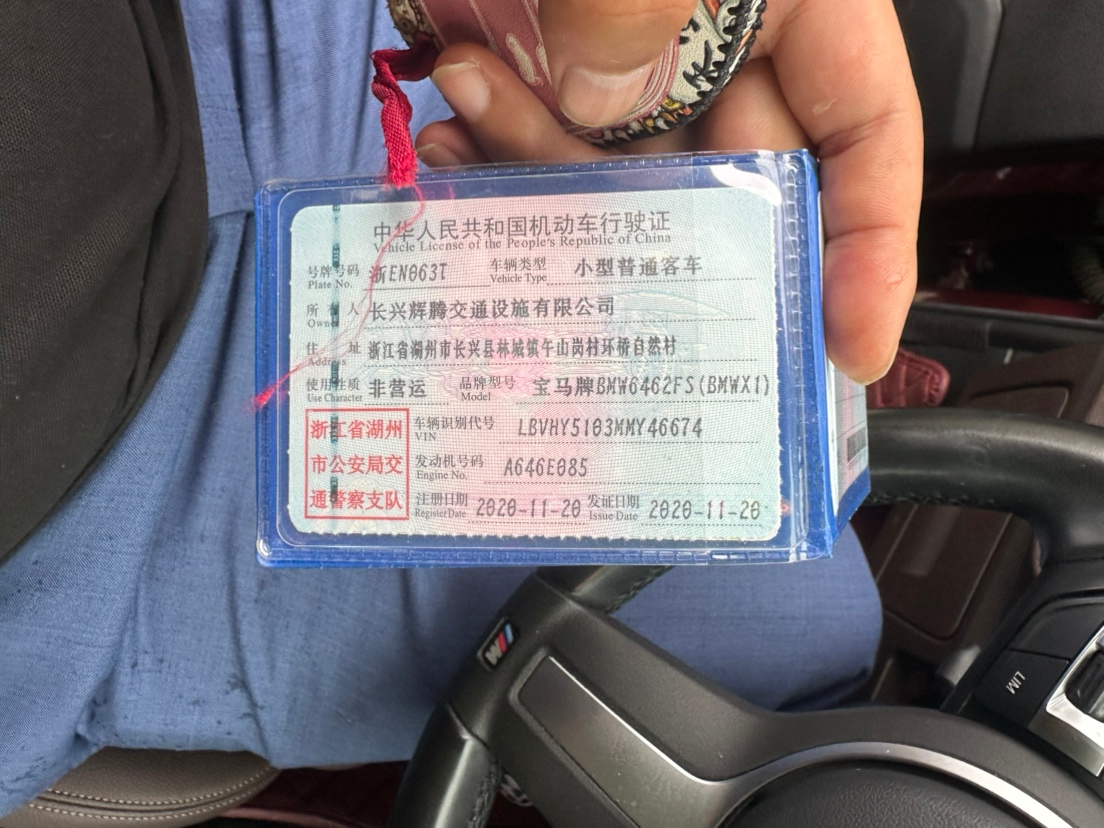 中华人民共和国机动车行驶证
Vehicle License of the People's Republic of China
号牌号码 浙EN063T 车辆类型 小型普通客车
Plate No. Vehicle Type
所有人 长兴辉腾交通设施有限公司
Owner
住址 浙江省湖州市长兴县林城镇午山岗村环桥自然村
Address
使用性质 非营运 品牌型号 宝马牌BMW6462FS(BMWX1)
Use Character Model
浙江省湖州
市公安局交
通警察支队
车辆识别代号 LBVHY5103MMY46674
VIN
发动机号码 A646E085
Engine No.
注册日期 2020-11-20 发证日期 2020-11-20
Register Date Issue Date
M
LIM